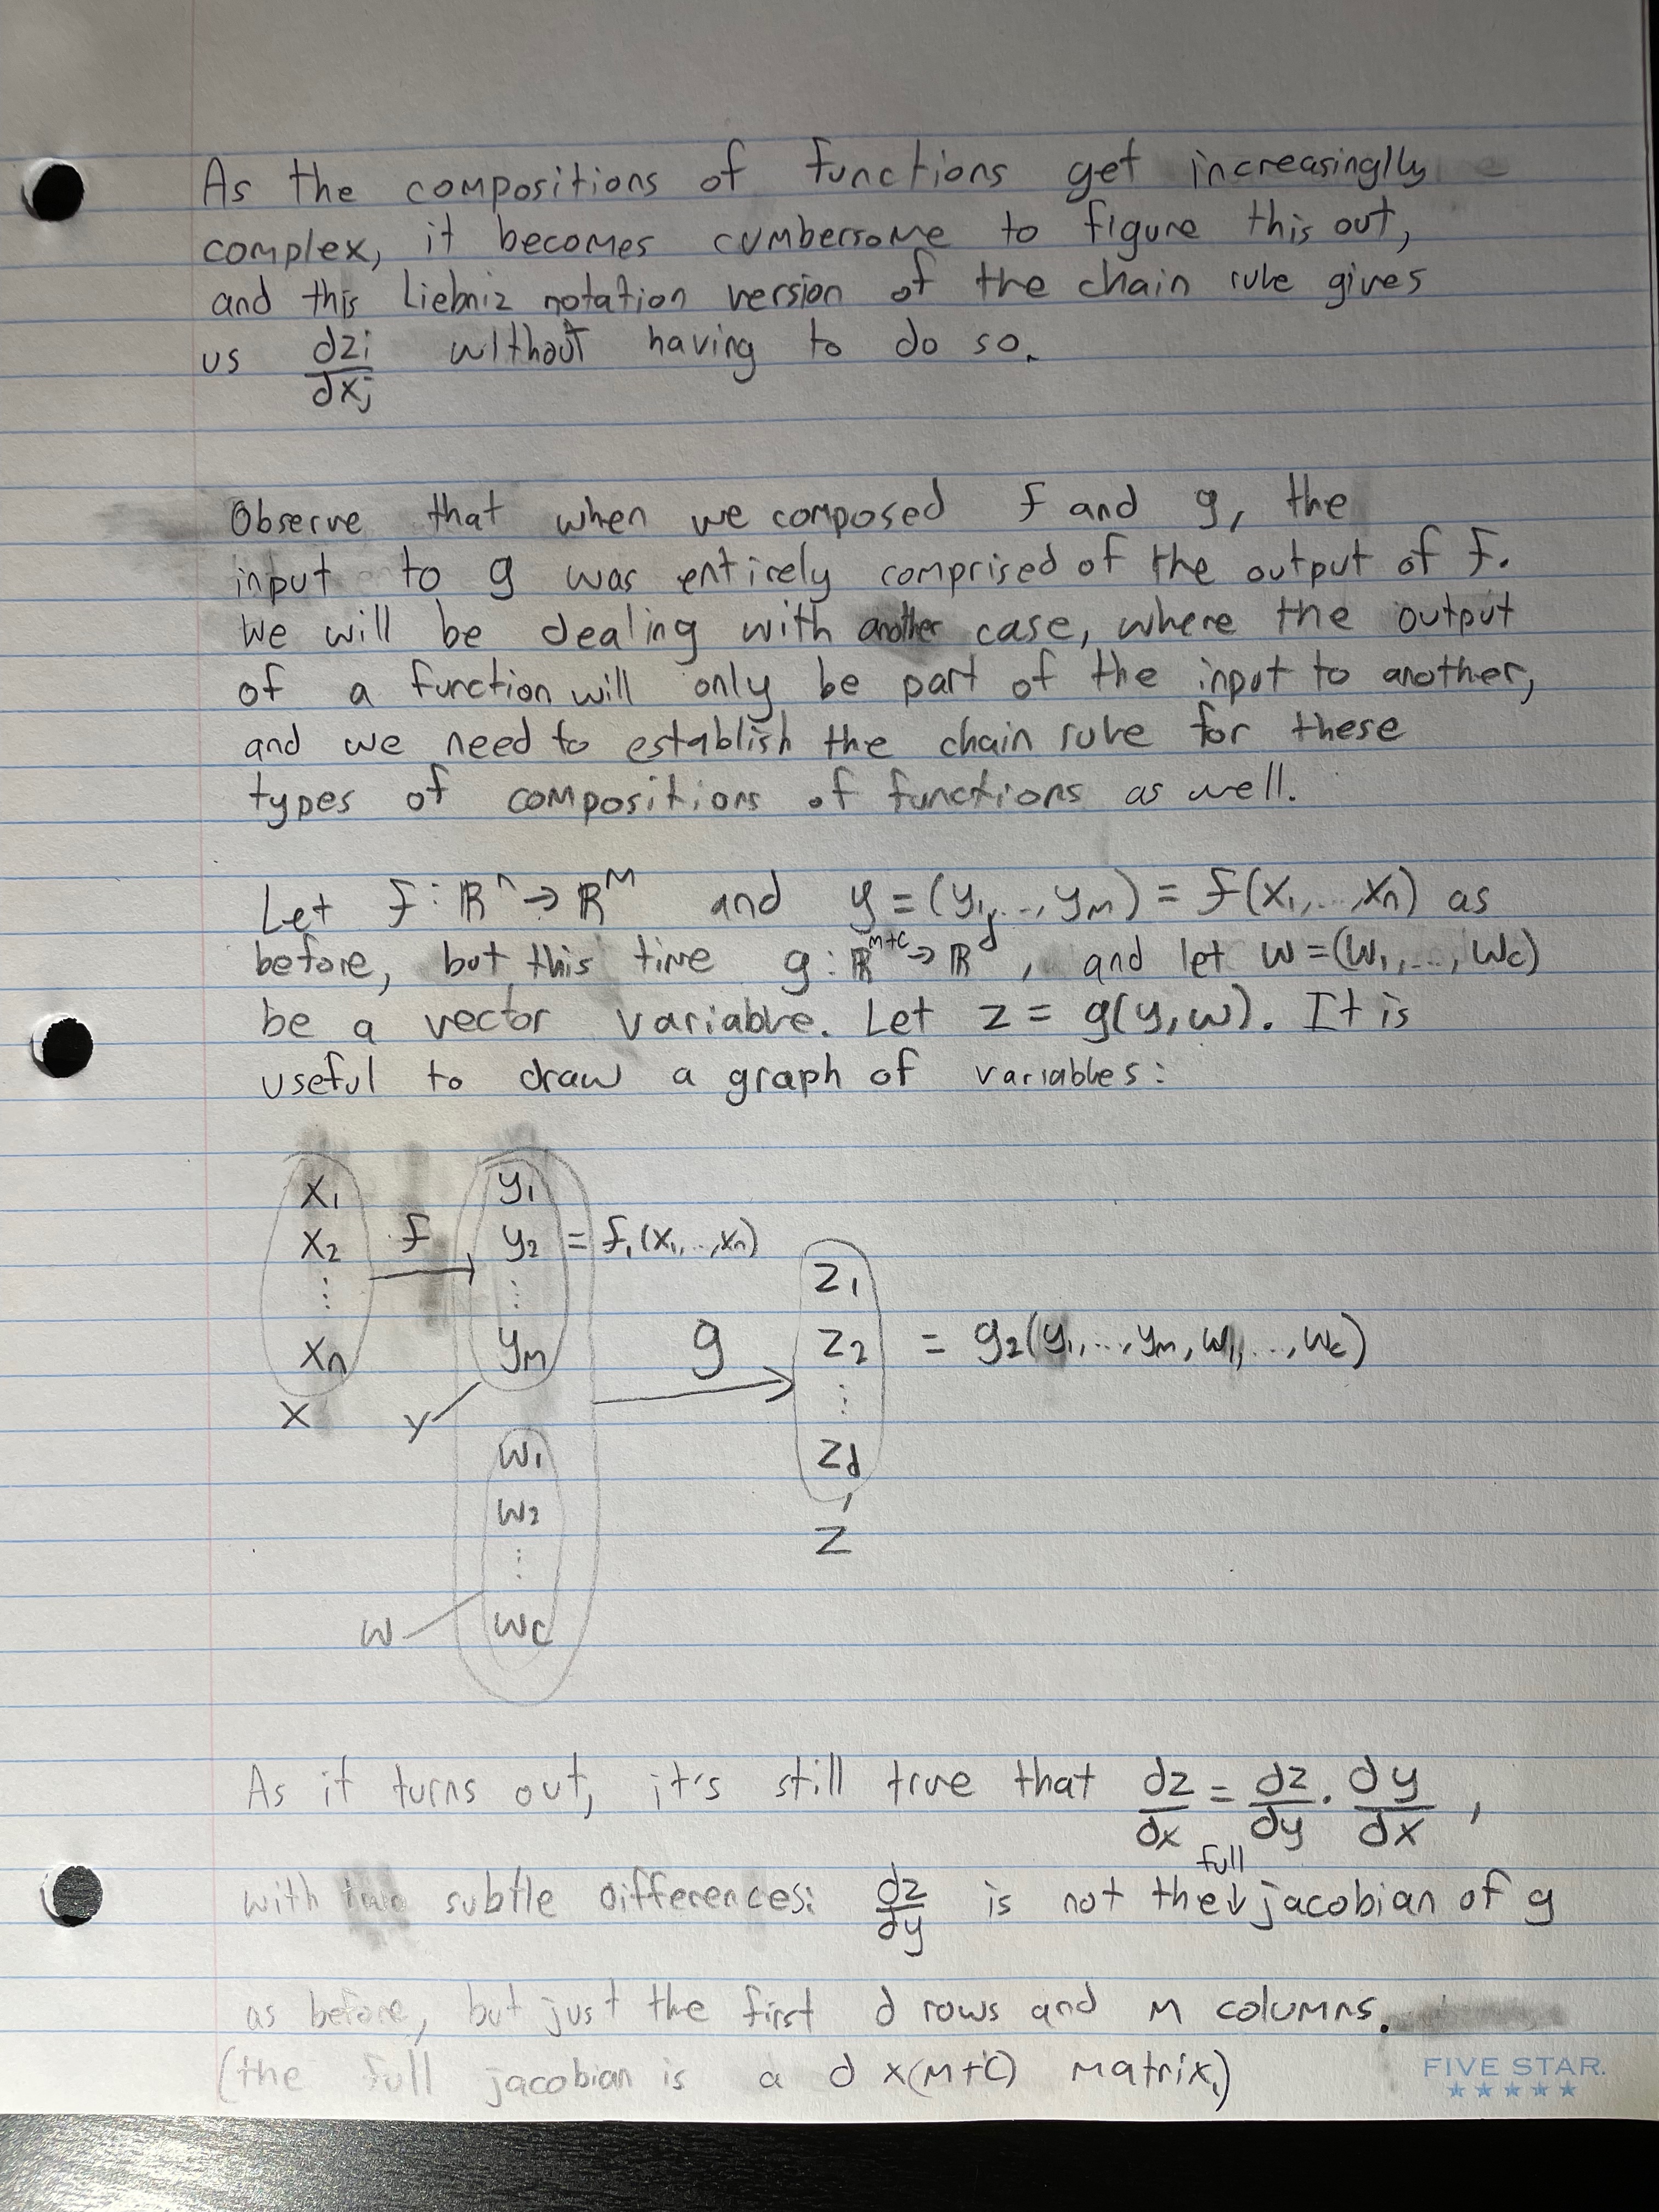 As the compositions of functions get increasinglly
complex, it becomes cumbersome to figure this out,
and this Liebniz notation version of the chain rule gives
us dzi/dxj without having to do so.
Observe that when we composed f and g, the
input to g was entirely comprised of the output of f.
We will be dealing with another case, where the output
of a function will only be part of the input to another,
and we need to establish the chain rule for these
types of compositions of functions as well.
Let f: ℝⁿ → ℝᵐ and y = (y₁,..., yₘ) = f(x₁,...,xₙ) as
before, but this time g: ℝᵐ⁺ᶜ → ℝᵈ, and let w = (w₁,..., w_c)
be a vector variable. Let z = g(y,w). It is
useful to draw a graph of variables:
x₁
x₂
⋮
xₙ
x
f
y₁
y₂ = f₁(x₁,..,xₙ)
⋮
yₘ
y
w₁
w₂
⋮
w_c
w
g
z₁
z₂ = g₂(y₁,..., yₘ, w₁,..., w_c)
⋮
z_d
z
As it turns out, it's still true that dz/dx = dz/dy · dy/dx,
with two subtle differences: dz/dy is not the full jacobian of g
as before, but just the first d rows and m columns.
(the full jacobian is a d x(m+c) matrix.)
FIVE STAR.
★★★★★